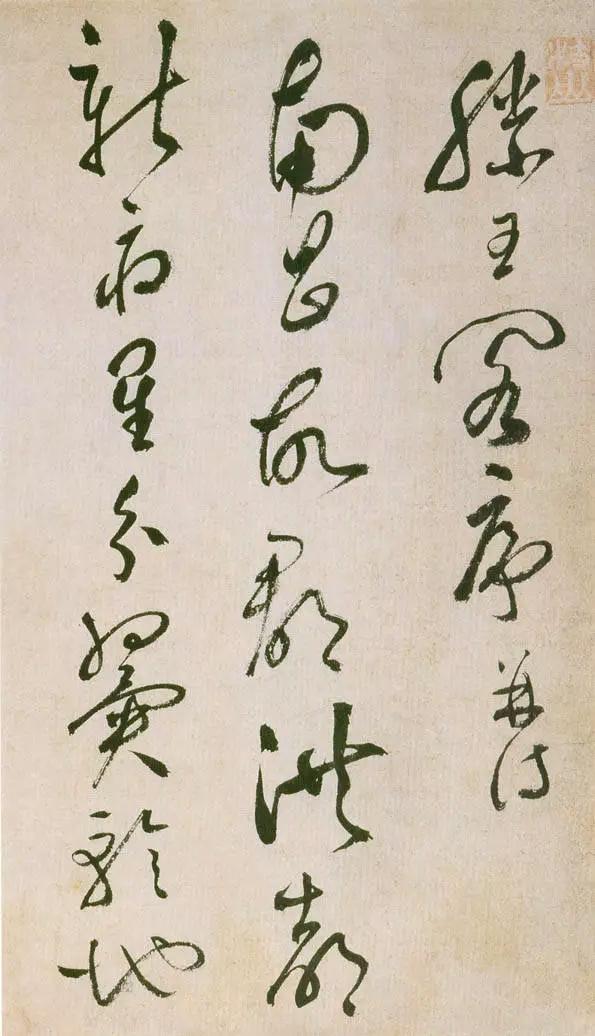 滕王阁序 并诗
南昌故郡洪都
新府星分翼轸地